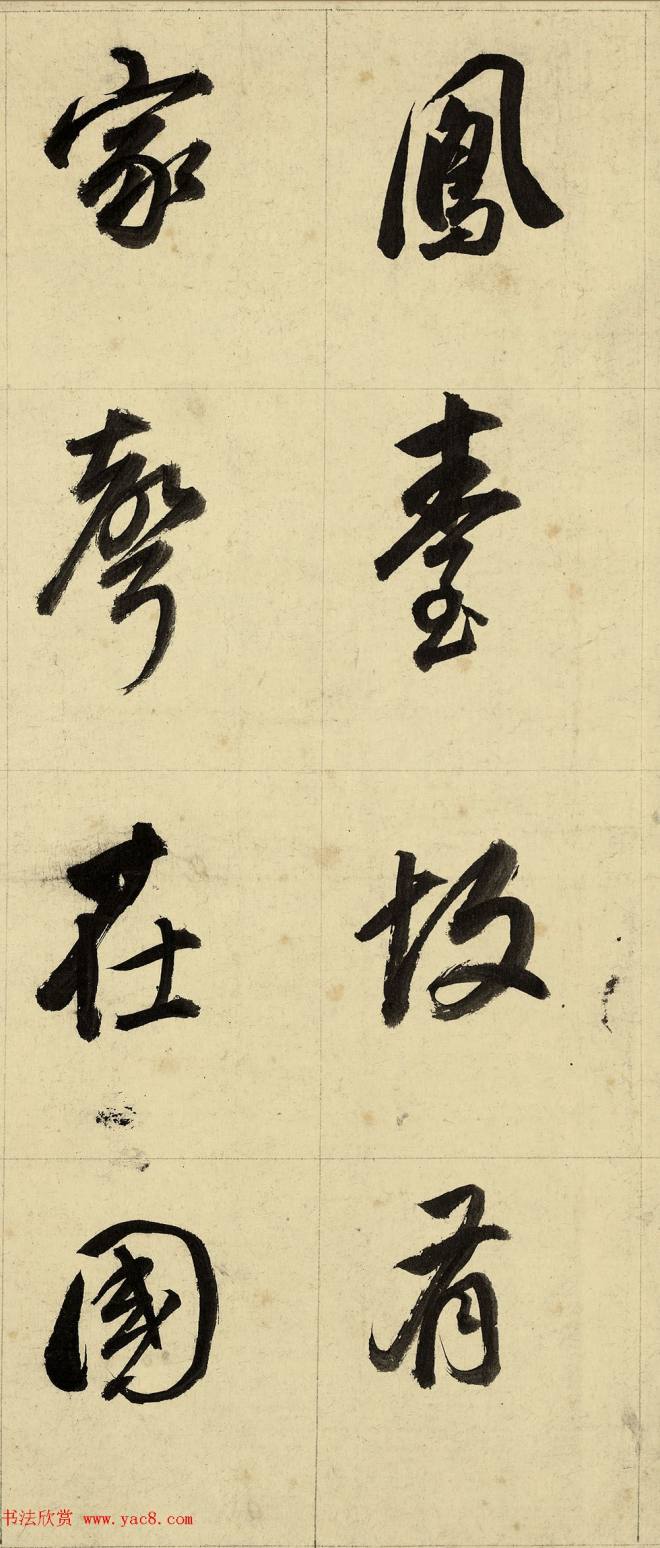 鳳臺故有
家聲在國
书法欣赏 www.yac8.com